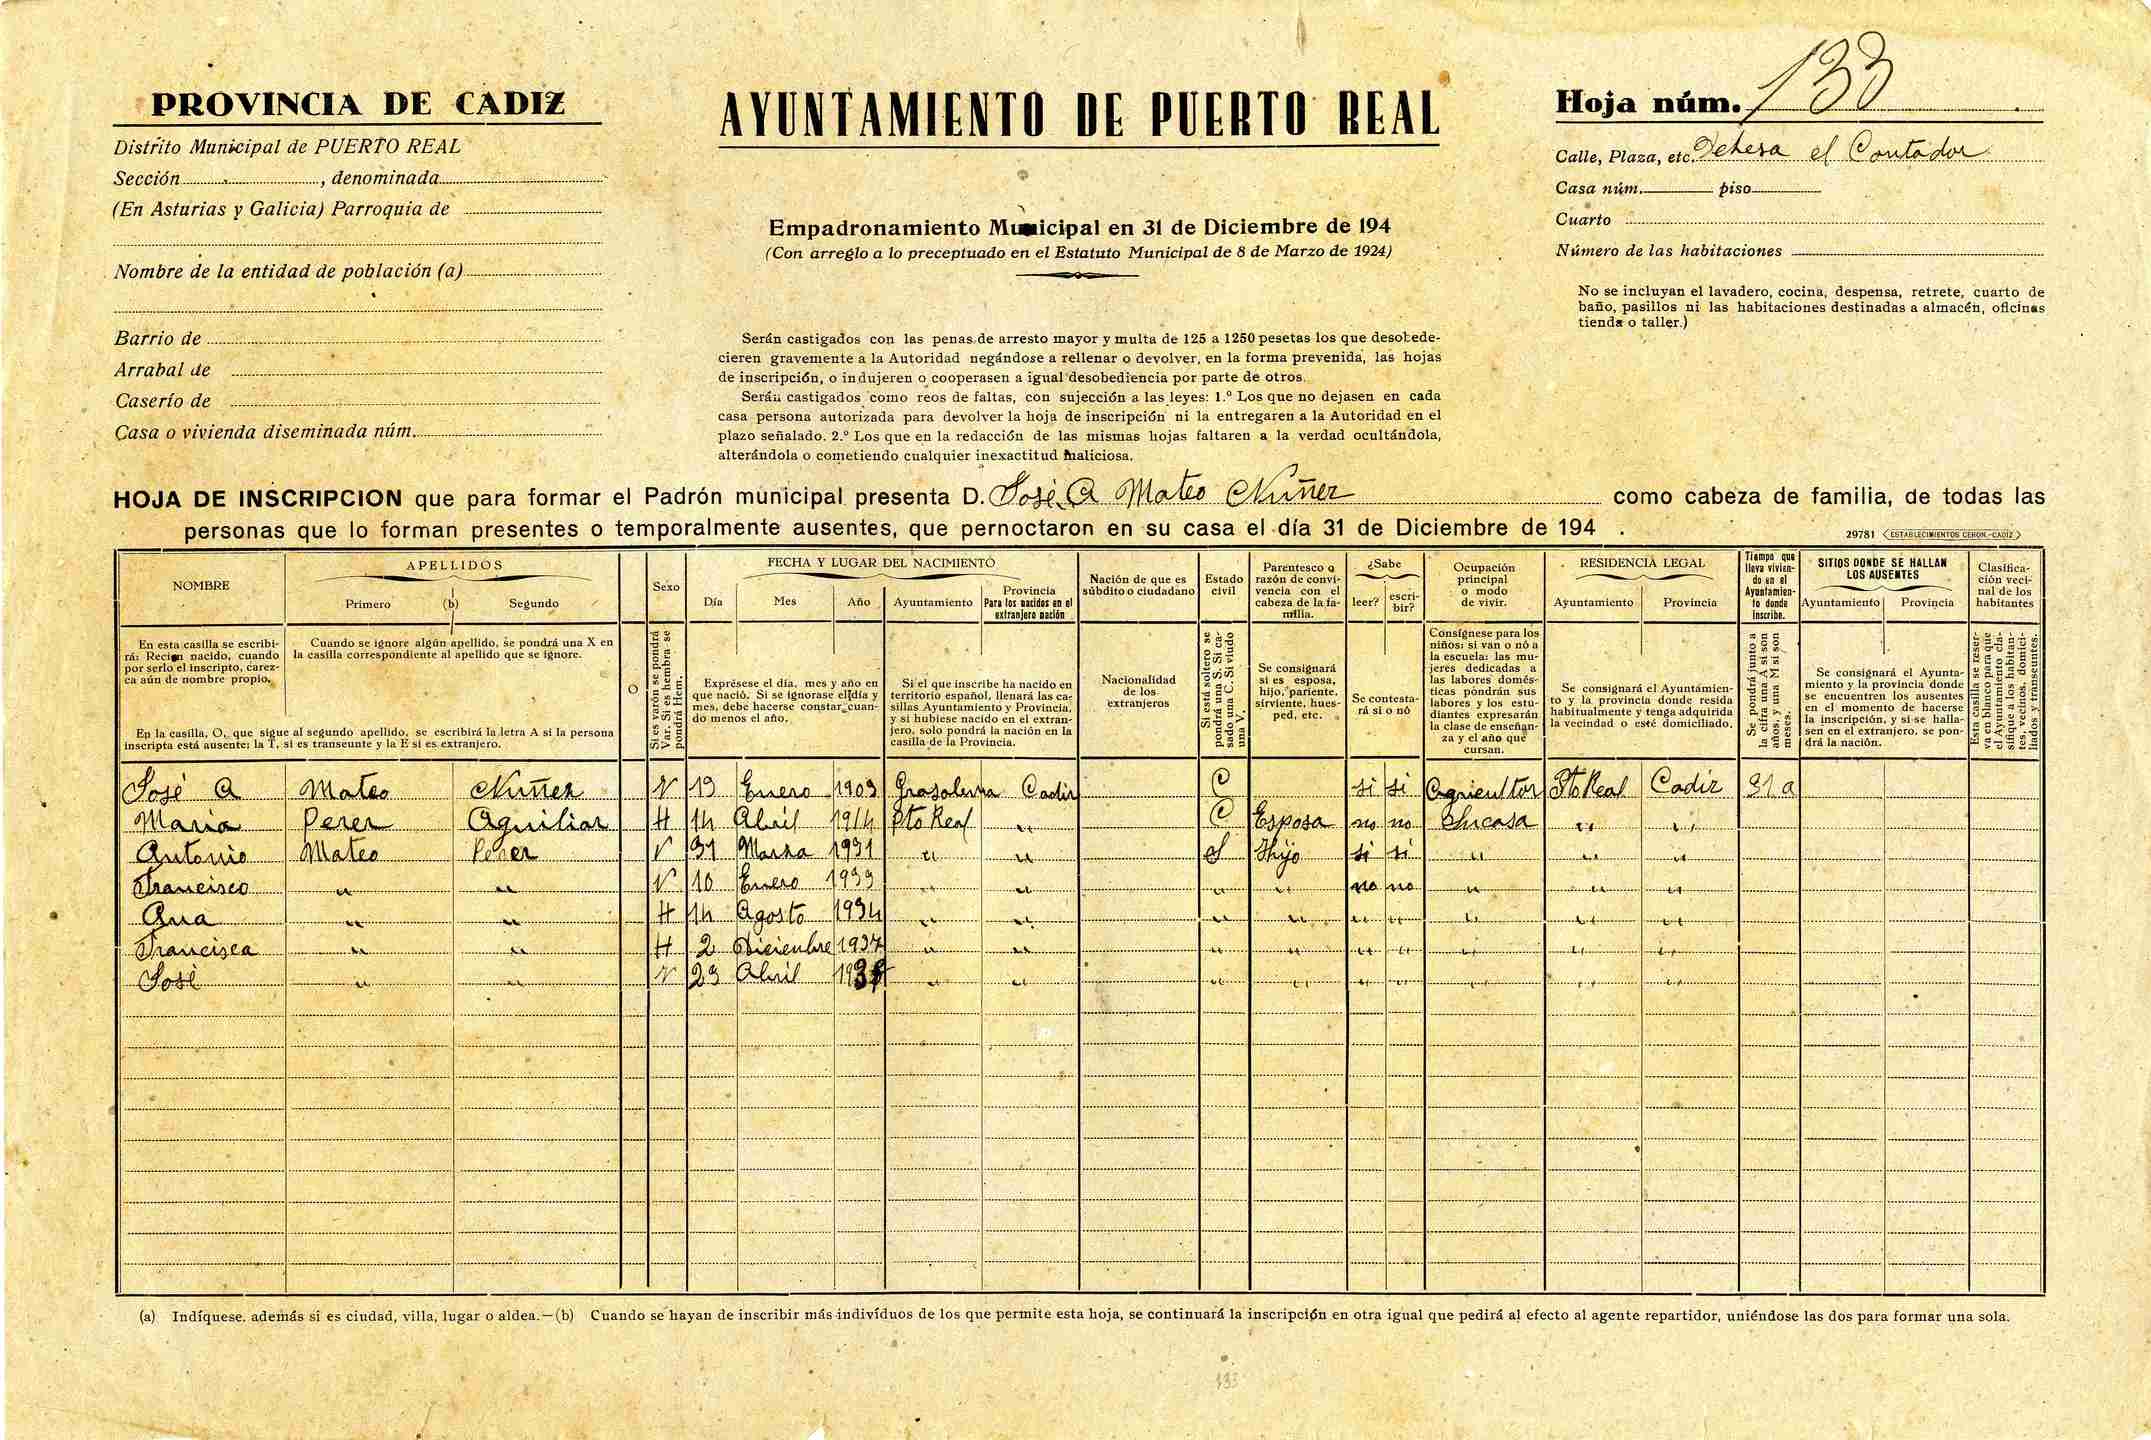 PROVINCIA DE CADIZ
Distrito Municipal de PUERTO REAL
Sección , denominada
(En Asturias y Galicia) Parroquia de
Nombre de la entidad de población (a)
Barrio de
Arrabal de
Caserío de
Casa o vivienda diseminada núm.
AYUNTAMIENTO DE PUERTO REAL
Empadronamiento Municipal en 31 de Diciembre de 194
(Con arreglo a lo preceptuado en el Estatuto Municipal de 8 de Marzo de 1924)
Serán castigados con las penas de arresto mayor y multa de 125 a 1250 pesetas los que desobede-
cieren gravemente a la Autoridad negándose a rellenar o devolver, en la forma prevenida, las hojas
de inscripción, o indujeren o cooperasen a igual desobediencia por parte de otros.
Serán castigados como reos de faltas, con sujección a las leyes: 1.º Los que no dejasen en cada
casa persona autorizada para devolver la hoja de inscripción ni la entregaren a la Autoridad en el
plazo señalado. 2.º Los que en la redacción de las mismas hojas faltaren a la verdad ocultándola,
alterándola o cometiendo cualquier inexactitud maliciosa.
Hoja núm. 133
Calle, Plaza, etc. Dehesa el Contador
Casa núm. piso
Cuarto
Número de las habitaciones
No se incluyan el lavadero, cocina, despensa, retrete, cuarto de
baño, pasillos ni las habitaciones destinadas a almacén, oficinas
tienda o taller.)
HOJA DE INSCRIPCION que para formar el Padrón municipal presenta D. José A Mateo Nuñez como cabeza de familia, de todas las
personas que lo forman presentes o temporalmente ausentes, que pernoctaron en su casa el día 31 de Diciembre de 194 .
29781 ESTABLECIMIENTOS CERON.-CADIZ
NOMBRE
APELLIDOS
Primero (b) Segundo
Sexo
FECHA Y LUGAR DEL NACIMIENTO
Día Mes Año Ayuntamiento
Provincia
Para los nacidos en el
extranjero nación
Nación de que es
súbdito o ciudadano
Estado
civil
Parentesco o
razón de convi-
vencia con el
cabeza de la fa-
milia.
¿Sabe
leer? escri-
bir?
Ocupación
principal
o modo
de vivir.
RESIDENCIA LEGAL
Ayuntamiento Provincia
Tiempo que
lleva vivien-
do en el
Ayuntamien-
to donde
inscribe.
SITIOS DONDE SE HALLAN
LOS AUSENTES
Ayuntamiento Provincia
Clasifica-
ción veci-
nal de los
habitantes
En esta casilla se escribi-
rá: Recien nacido, cuando
por serlo el inscripto, carez-
ca aún de nombre propio.
Cuando se ignore algún apellido, se pondrá una X en
la casilla correspondiente al apellido que se ignore.
En la casilla, O, que sigue al segundo apellido, se escribirá la letra A si la persona
inscripta está ausente; la T, si es transeunte y la E si es extranjero.
O
Si es varón se pondrá
Var. Si es hembra se
pondrá Hem.
Exprésese el día, mes y año en
que nació. Si se ignorase el día y
mes, debe hacerse constar cuan-
do menos el año.
Si el que inscribe ha nacido en
territorio español, llenará las ca-
sillas Ayuntamiento y Provincia,
y si hubiese nacido en el extran-
jero, solo pondrá la nación en la
casilla de la Provincia.
Nacionalidad
de los
extranjeros
Si está soltero se
pondrá una S. Si ca-
sado una C. Si viudo
una V.
Se consignará
si es esposa,
hijo, pariente,
sirviente, hues-
ped, etc.
Se contesta-
rá si o nó
Consígnese para los
niños: si van o nó a
la escuela; las mu-
jeres dedicadas a
las labores domés-
ticas pondrán sus
labores y los estu-
diantes expresarán
la clase de enseñan-
za y el año que
cursan.
Se consignará el Ayuntamien-
to y la provincia donde resida
habitualmente y tenga adquirida
la vecindad o esté domiciliado.
Se pondrá junto a
la cifra una A si son
años, y una M si son
meses.
Se consignará el Ayunta-
miento y la provincia donde
se encuentren los ausentes
en el momento de hacerse
la inscripción, y si se halla-
sen en el extranjero, se pon-
drá la nación.
Esta casilla se reser-
va en blanco para que
el Ayuntamiento cla-
sifique a los habitan-
tes, vecinos, domici-
liados y transeuntes.
José A Mateo Nuñez V 19 Enero 1903 Grasalema Cadiz C si si Agricultor Pto Real Cadiz 31 a
Maria Perez Aguiliar H 14 Abril 1914 Pto Real " C Esposa no no Shicasa " "
Antonio Mateo Perez V 31 Marza 1931 " " S Hijo si si " " "
Francisco " " V 10 Enero 1933 " " " " no no " " "
Ana " " H 14 Agosto 1934 " " " " " " " " "
Francisca " " H 2 Diciembre 1937 " " " " " " " " "
José " " V 23 Abril " " " " " " " " "
(a) Indíquese, además si es ciudad, villa, lugar o aldea.—(b) Cuando se hayan de inscribir más individuos de los que permite esta hoja, se continuará la inscripción en otra igual que pedirá al efecto al agente repartidor, uniéndose las dos para formar una sola.
133